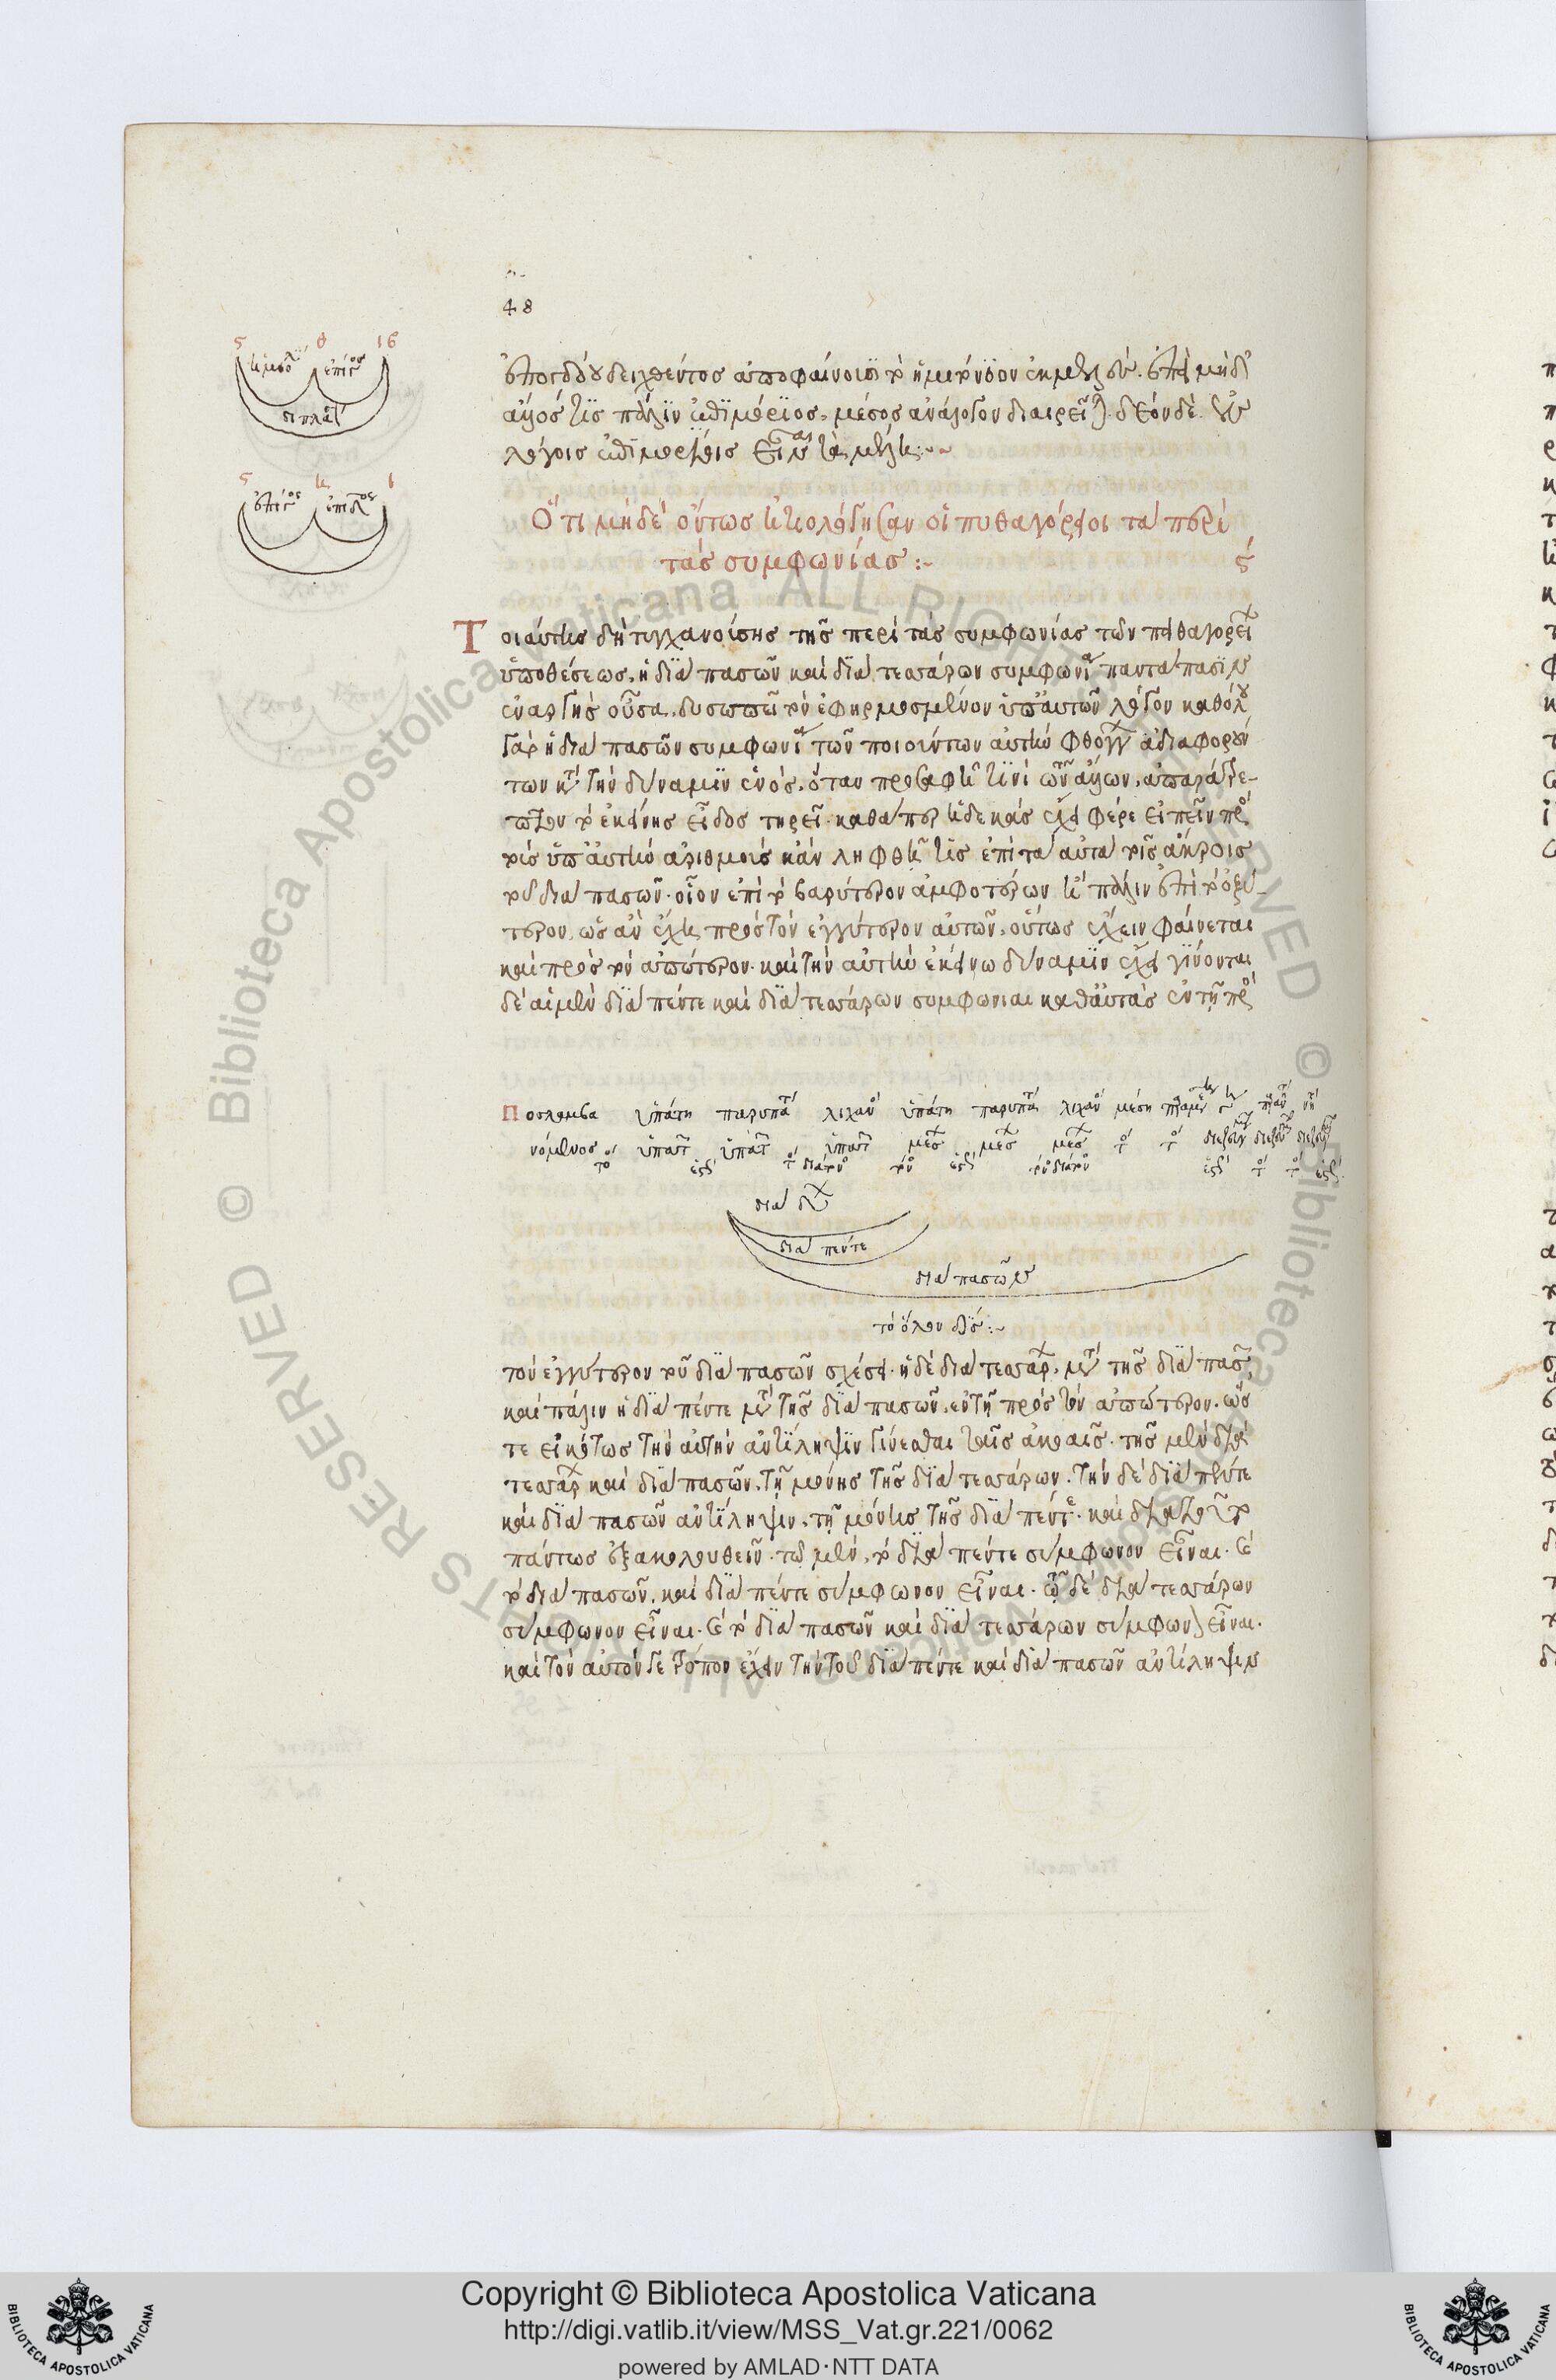 48
ϛ θ ιβ
ἡμιόλ ἐπίγος
διπλασ
ϛ η ι
ἐπίγος ἐπίδος
δειχθέντος ἀποφαίνουσι τὸ ἡμιτόνιον ἐπεὶ μηδ
ἄλλός τις πάλιν ἐπιμόριος μέσος ἀνάλογον διαιρεῖ δέον δὲ ἐν
λόγοις ἐπιμορίοις εἶναι τὰ ἐμμελῆ:~
Ὅτι μὴ δεόντως ἠκολούθησαν οἱ πυθαγόρειοι τὰ περὶ
τὰς συμφωνίας:~ ϛ
Τοιαύτης δὴ τυγχανούσης τῆς περὶ τὰς συμφωνίας τῶν πυθαγορεί
ὑποθέσεως, ἡ διὰ πασῶν καὶ διὰ τεσσάρων συμφωνία παντάπασιν
ἐναργὴς οὖσα, δυσωπεῖ τὸν ἐφηρμοσμένον ὑπ' αὐτῶν λόγον καθόλου
γὰρ ἡ διὰ πασῶν συμφωνία τῶν ποιούντων αὐτὴν φθόγγ ἀδιαφορούν
των κατὰ τὴν δύναμιν ἑνός, ὅταν προσαφθῇ τινὶ τῶν ἄλλων, ἀπαράτρε-
πτον τὸ ἐκείνης εἶδος τηρεῖ· καθάπερ ἡ δεκὰς ἔχει φέρε εἰπεῖν πρὸς
τοὺς ὑπ' αὐτὴν ἀριθμοὺς κἂν ληφθῇ τις ἐπὶ τὰ αὐτὰ τοῖς ἄκροις
τοῦ διὰ πασῶν· οἷον ἐπὶ τὸ βαρύτερον ἀμφοτέρων ἢ πάλιν ἐπὶ τὸ ὀξύ-
τερον, ὡς ἂν ἔχῃ πρὸς τὸν ἐγγύτερον αὐτῶν, οὕτως ἔχειν φαίνεται
καὶ πρὸς τὸν ἀπώτερον· καὶ τὴν αὐτὴν ἐκείνῳ δύναμιν ἔχει γίνονται
δὲ αἱ μὲν διὰ πέντε καὶ διὰ τεσσάρων συμφωνίαι καθ' αὑτὰς ἐν τῇ πρὸς
Προσλαμβα ὑπάτη παρυπάτ λιχανὸ ὑπάτη παρυπάτ λιχανὸ μέση
νόμενος ὑπατ ὑπατ ὑπατ μέσ μέσ μέσ
διὰ δ
διὰ πέντε
διὰ πασῶν
τὸ ὅλον δίς:~
τὸν ἐγγύτερον τοῦ διὰ πασῶν σχέσει· ἡ δὲ διὰ τεσσάρ, μετὰ τῆς διὰ πασῶ,
καὶ πάλιν ἡ διὰ πέντε μετὰ τῆς διὰ πασῶν, ἐν τῇ πρὸς τὸν ἀπώτερον· ὥσ
τε εἰκότως τὴν αὐτὴν ἀντίληψιν γίνεσθαι ταῖς ἀκοαῖς· τῆς μὲν διὰ
τεσσάρ καὶ διὰ πασῶν, τῇ μόνης τῆς διὰ τεσσάρων· τὴν δὲ διὰ πέντε
καὶ διὰ πασῶν ἀντίληψιν, τῇ μόνης τῆς διὰ πέντε· καὶ διὰ τοῦτο
πάντως ἐξακολουθεῖν· τῷ μὲν, τὸ διὰ πέντε σύμφωνον εἶναι· καὶ
τὸ διὰ πασῶν, καὶ διὰ πέντε σύμφωνον εἶναι· τῷ δὲ διὰ τεσσάρων
σύμφωνον εἶναι· καὶ τὸ διὰ πασῶν καὶ διὰ τεσσάρων σύμφων εἶναι·
καὶ τὸν αὐτόν γε τρόπον ἔχειν τὴν τοῦ διὰ πέντε καὶ διὰ πασῶν ἀντίληψιν
© Biblioteca Apostolica Vaticana ALL RIGHTS RESERVED
Copyright © Biblioteca Apostolica Vaticana
http://digi.vatlib.it/view/MSS_Vat.gr.221/0062
powered by AMLAD·NTT DATA
BIBLIOTECA APOSTOLICA VATICANA
BIBLIOTECA APOSTOLICA VATICANA